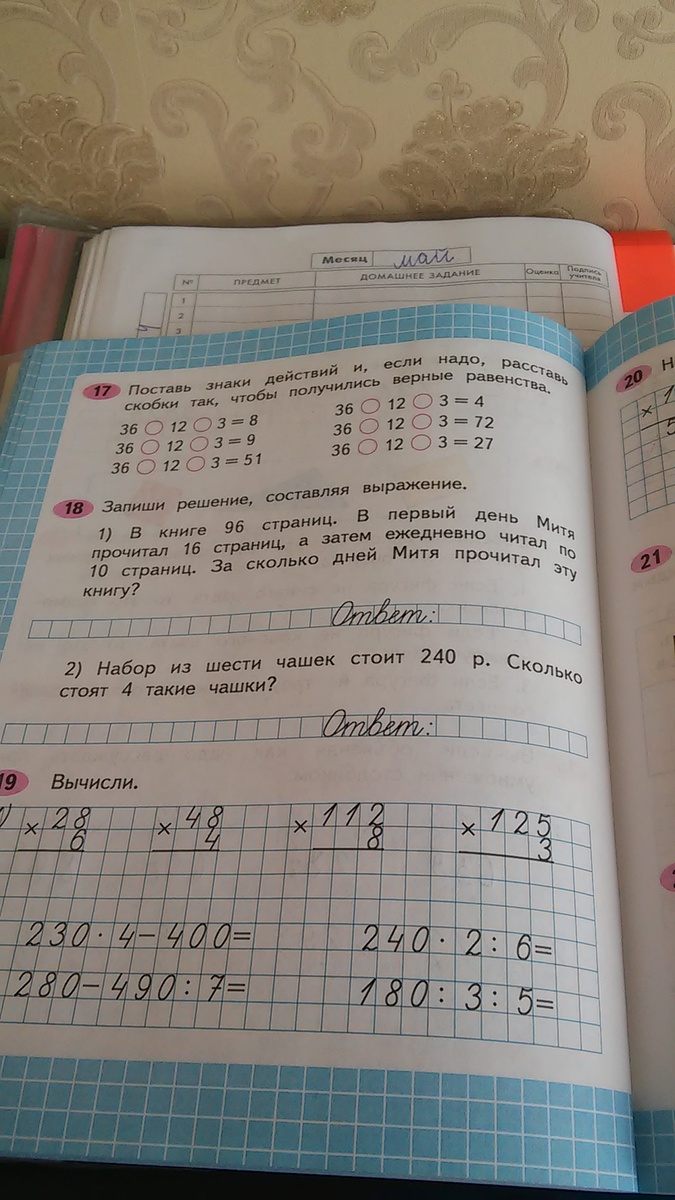 Месяц май
№ ПРЕДМЕТ ДОМАШНЕЕ ЗАДАНИЕ Оценка Подпись учителя
1
2
3
17 Поставь знаки действий и, если надо, расставь
скобки так, чтобы получились верные равенства.
36 ○ 12 ○ 3 = 8 36 ○ 12 ○ 3 = 4
36 ○ 12 ○ 3 = 9 36 ○ 12 ○ 3 = 72
36 ○ 12 ○ 3 = 51 36 ○ 12 ○ 3 = 27
18 Запиши решение, составляя выражение.
1) В книге 96 страниц. В первый день Митя
прочитал 16 страниц, а затем ежедневно читал по
10 страниц. За сколько дней Митя прочитал эту
книгу?
Ответ:
2) Набор из шести чашек стоит 240 р. Сколько
стоят 4 такие чашки?
Ответ:
19 Вычисли.
× 28 × 48 × 112 × 125
6 4 8 3
230 · 4 – 400 = 240 · 2 : 6 =
280 – 490 : 7 = 180 : 3 : 5 =
20 Н
× 1
5
21